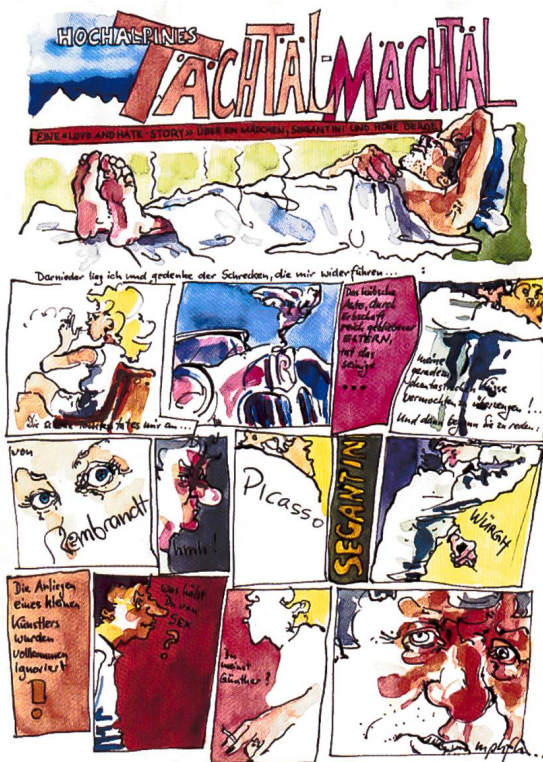 HOCHALPINES
TÄCHTÄL-MÄCHTÄL
EINE «LOVE AND HATE-STORY» ÜBER EIN MÄDCHEN, SEGANTINI UND HOHE BERGE
Darnieder lieg ich und gedenke der Schrecken, die mir widerführen... :
Das hübsche
Auto, durch
Erbschaft
reich gebliebener
ELTERN,
tat das
seinige
...
meine
geradezu
phantastischen
vermochten zu überzeugen !..
Und dann begann sie zu reden:
die tat es mir an...
von
Rembrandt
hmh!
Picasso
SEGANTIN
WÜRGH
Die Anliegen
eines kleinen
Künstlers
wurden
vollkommen
ignoriert
!
Was hälst
Du von
SEX
?
Du
meinst
Günther?
mpfh...